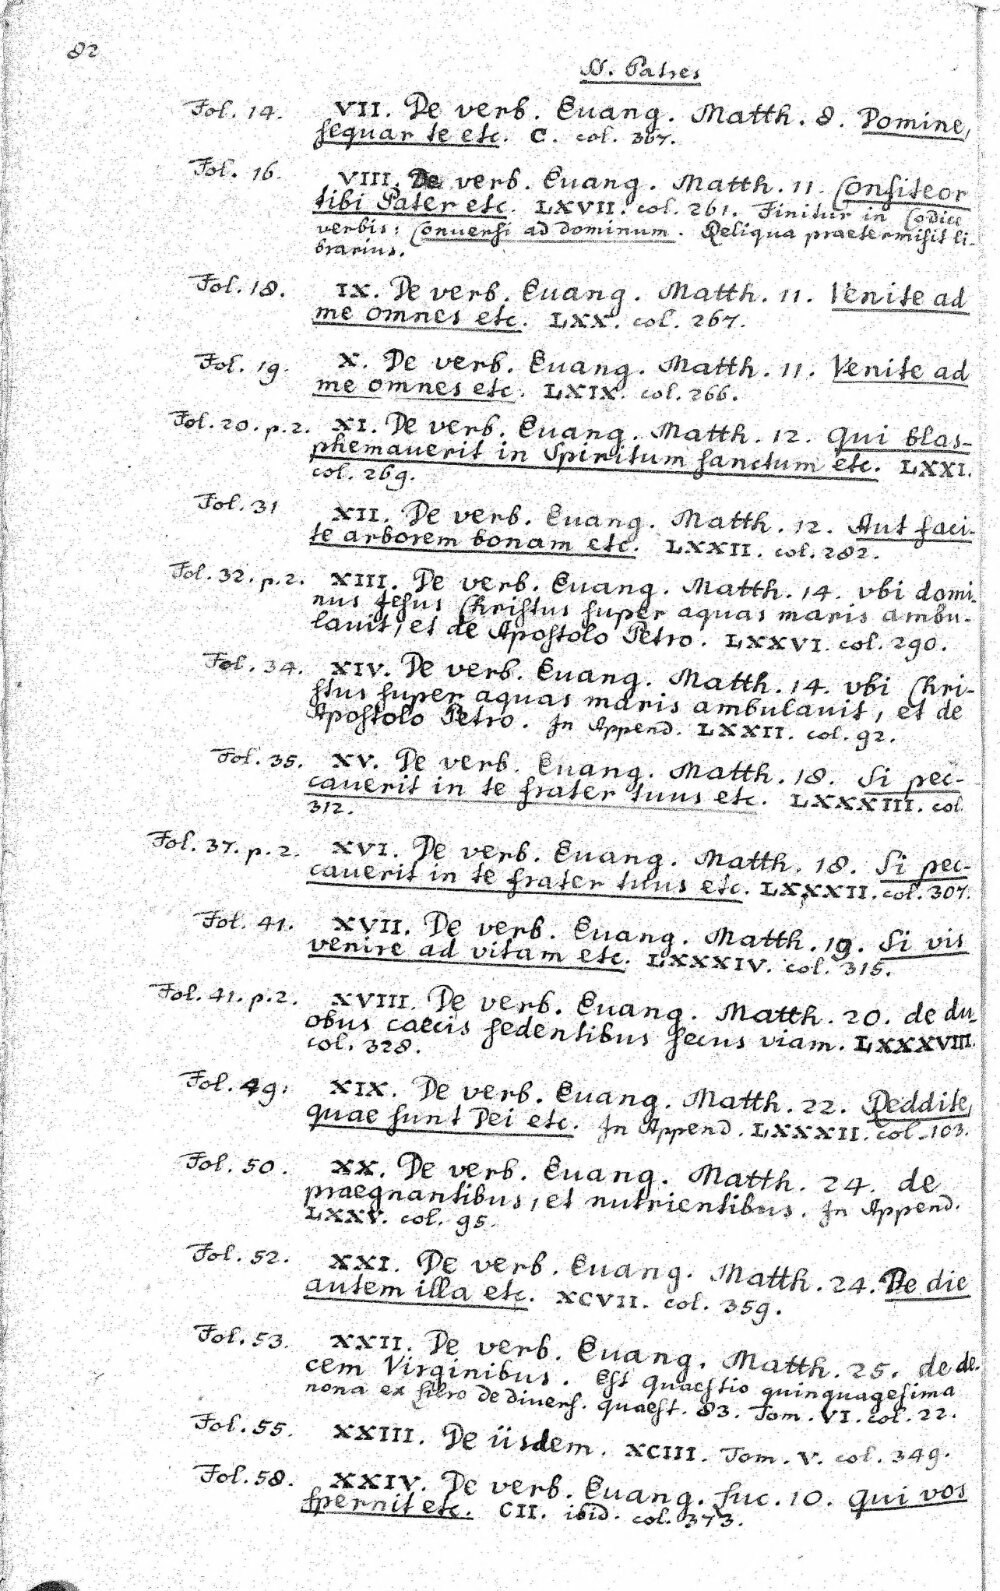 82
SS. Patres
Fol. 14. VII. De verb. Euang. Matth. 8. Domine,
sequar te etc. C. col. 367.
Fol. 16. VIII. De verb. Euang. Matth. 11. Confiteor
tibi Pater etc. LXVII. col. 261. Finitur in Codice
verbis: Conuersi ad dominum. Reliqua praetermisit li-
brarius.
Fol. 18. IX. De verb. Euang. Matth. 11. Venite ad
me omnes etc. LXX. col. 267.
Fol. 19. X. De verb. Euang. Matth. 11. Venite ad
me omnes etc. LXIX. col. 266.
Fol. 20. p. 2. XI. De verb. Euang. Matth. 12. Qui blas-
phemauerit in Spiritum sanctum etc. LXXI.
col. 269.
Fol. 31 XII. De verb. Euang. Matth. 12. Aut faci-
te arborem bonam etc. LXXII. col. 282.
Fol. 32. p. 2. XIII. De verb. Euang. Matth. 14. vbi domi-
nus Jesus Christus super aquas maris ambu-
lauit, et de Apostolo Petro. LXXVI. col. 290.
Fol. 34. XIV. De verb. Euang. Matth. 14. vbi Chri-
stus super aquas maris ambulauit, et de
Apostolo Petro. In Append. LXXII. col. 92.
Fol. 35. XV. De verb. Euang. Matth. 18. Si pec-
cauerit in te frater tuus etc. LXXXIII. col.
312.
Fol. 37. p. 2. XVI. De verb. Euang. Matth. 18. Si pec-
cauerit in te frater tuus etc. LXXXII. col. 307.
Fol. 41. XVII. De verb. Euang. Matth. 19. Si vis
venire ad vitam etc. LXXXIV. col. 315.
Fol. 41. p. 2. XVIII. De verb. Euang. Matth. 20. de du-
obus caecis sedentibus secus viam. LXXXVIII.
col. 328.
Fol. 49. XIX. De verb. Euang. Matth. 22. Reddite,
quae sunt Dei etc. In Append. LXXXII. col. 103.
Fol. 50. XX. De verb. Euang. Matth. 24. de
praegnantibus, et nutrientibus. In Append.
LXXV. col. 95.
Fol. 52. XXI. De verb. Euang. Matth. 24. De die
autem illa etc. XCVII. col. 359.
Fol. 53. XXII. De verb. Euang. Matth. 25. de de-
cem Virginibus. Est quaestio quinquagesima
nona ex libro de divers. quaest. 83. Tom. VI. col. 22.
Fol. 55. XXIII. De iisdem. XCIII. Tom. V. col. 349.
Fol. 58. XXIV. De verb. Euang. Luc. 10. Qui vos
spernit etc. CII. ibid. col. 373.